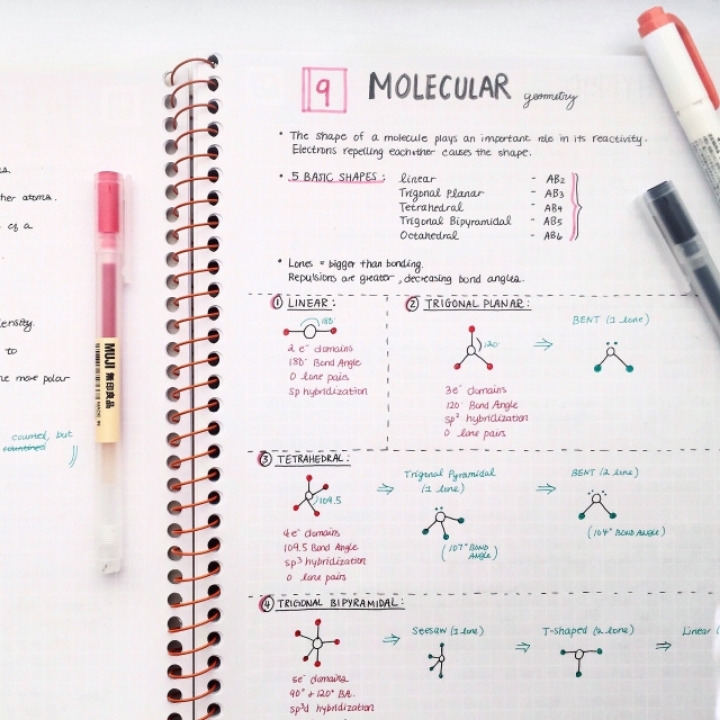 her atoms.
of a
ensity.
to
he more polar
counted, but
MUJI 無印良品
9 MOLECULAR geometry
• The shape of a molecule plays an important role in its reactivity.
Electrons repelling eachother causes the shape.
• 5 BASIC SHAPES: linear - AB2
Trigonal Planar - AB3
Tetrahedral - AB4
Trigonal Bipyramidal - AB5
Octahedral - AB6
• Lones = bigger than bonding.
Repulsions are greater, decreasing bond angles.
① LINEAR:
180°
2 e⁻ domains
180° Bond Angle
0 lone pairs
sp hybridization
② TRIGONAL PLANAR:
120°
⇒ BENT (1 lone)
3e⁻ domains
120° Bond Angle
sp² hybridization
0 lone pairs
③ TETRAHEDRAL:
109.5
⇒ Trigonal Pyramidal
(1 lone)
(107° BOND
ANGLE)
⇒ BENT (2 lone)
(104° BOND ANGLE)
4e⁻ domains
109.5 Bond Angle
sp³ hybridization
0 lone pairs
④ TRIGONAL BIPYRAMIDAL:
⇒ Seesaw (1 lone)
⇒ T-shaped (2 lone)
⇒ Linear (
5e⁻ domains
90° + 120° BA.
sp³d hybridization